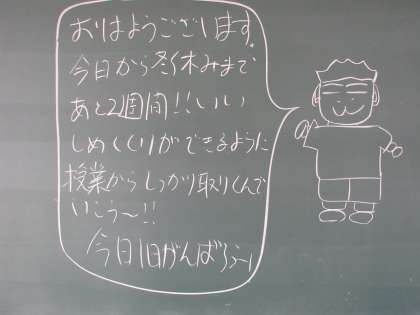 おはようございます。
今日から冬休みまで
あと2週間!!いい
しめくくりができるように
授業からしっかり取りくんで
いこう〜!!
今日1日がんばろう〜!